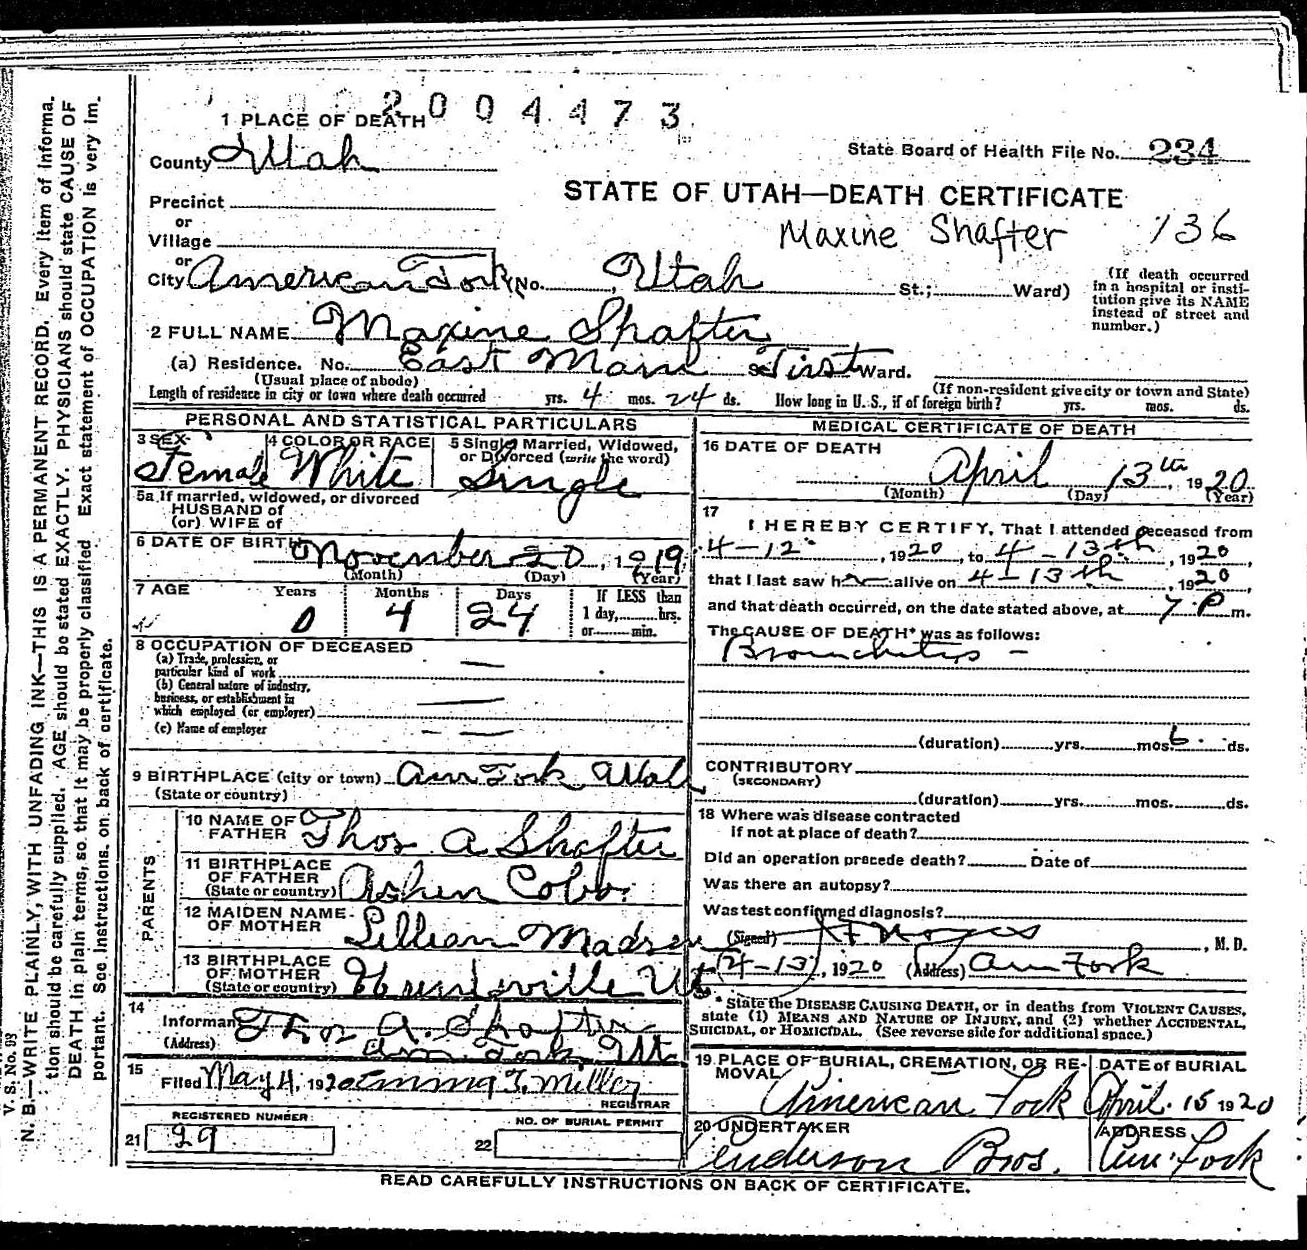 2004473
1 PLACE OF DEATH
County Utah
State Board of Health File No. 234
STATE OF UTAH—DEATH CERTIFICATE
Precinct
or
Village
Maxine Shafter 136
or
City American Fork (No. , Utah St.; Ward)
(If death occurred in a hospital or institution give its NAME instead of street and number.)
2 FULL NAME Maxine Shafter
(a) Residence. No. East Main St First Ward.
(Usual place of abode) (If non-resident give city or town and State)
Length of residence in city or town where death occurred yrs. 4 mos. 24 ds. How long in U. S., if of foreign birth? yrs. mos. ds.
PERSONAL AND STATISTICAL PARTICULARS
3 SEX Female
4 COLOR OR RACE White
5 Single, Married, Widowed, or Divorced (write the word) Single
5a If married, widowed, or divorced
HUSBAND of
(or) WIFE of
6 DATE OF BIRTH November 20, 1919
(Month) (Day) (Year)
7 AGE Years Months Days If LESS than
1 day, hrs.
or min.
0 4 24
8 OCCUPATION OF DECEASED
(a) Trade, profession, or
particular kind of work —
(b) General nature of industry,
business, or establishment in
which employed (or employer) —
(c) Name of employer — —
9 BIRTHPLACE (city or town) Am Fork Utah
(State or country)
PARENTS
10 NAME OF FATHER Thos A Shafter
11 BIRTHPLACE OF FATHER
(State or country)
12 MAIDEN NAME OF MOTHER Lillian Madsen
13 BIRTHPLACE OF MOTHER
(State or country) Huntsville Ut
14
Informant Thos A. Shafter
(Address) Am. Fork, Ut
15
Filed May 4, 1920 Emma T. Miller
REGISTRAR
REGISTERED NUMBER
21 29
NO. OF BURIAL PERMIT
22
MEDICAL CERTIFICATE OF DEATH
16 DATE OF DEATH
April 13th, 1920
(Month) (Day) (Year)
17
I HEREBY CERTIFY, That I attended deceased from
4-12, 1920, to 4-13th, 1920,
that I last saw her alive on 4-13th, 1920,
and that death occurred, on the date stated above, at 7 P m.
The CAUSE OF DEATH* was as follows:
Bronchitis —
(duration) yrs. mos. 6 ds.
CONTRIBUTORY
(SECONDARY)
(duration) yrs. mos. ds.
18 Where was disease contracted
If not at place of death?
Did an operation precede death? Date of
Was there an autopsy?
Was test confirmed diagnosis?
(Signed) Noyes, M. D.
(4-13), 1920 (Address) Am Fork
* State the DISEASE CAUSING DEATH, or in deaths from VIOLENT CAUSES,
state (1) MEANS AND NATURE OF INJURY, and (2) whether ACCIDENTAL,
SUICIDAL, or HOMICIDAL. (See reverse side for additional space.)
19 PLACE OF BURIAL, CREMATION, OR REMOVAL
American Fork
DATE of BURIAL
April 15 1920
20 UNDERTAKER
Anderson Bros.
ADDRESS
Am. Fork
READ CAREFULLY INSTRUCTIONS ON BACK OF CERTIFICATE.
V. S. No. B3
N. B.—WRITE PLAINLY, WITH UNFADING INK—THIS IS A PERMANENT RECORD. Every item of informa-
tion should be carefully supplied. AGE should be stated EXACTLY. PHYSICIANS should state CAUSE OF
DEATH in plain terms, so that it may be properly classified. Exact statement of OCCUPATION is very im-
portant. See instructions on back of certificate.